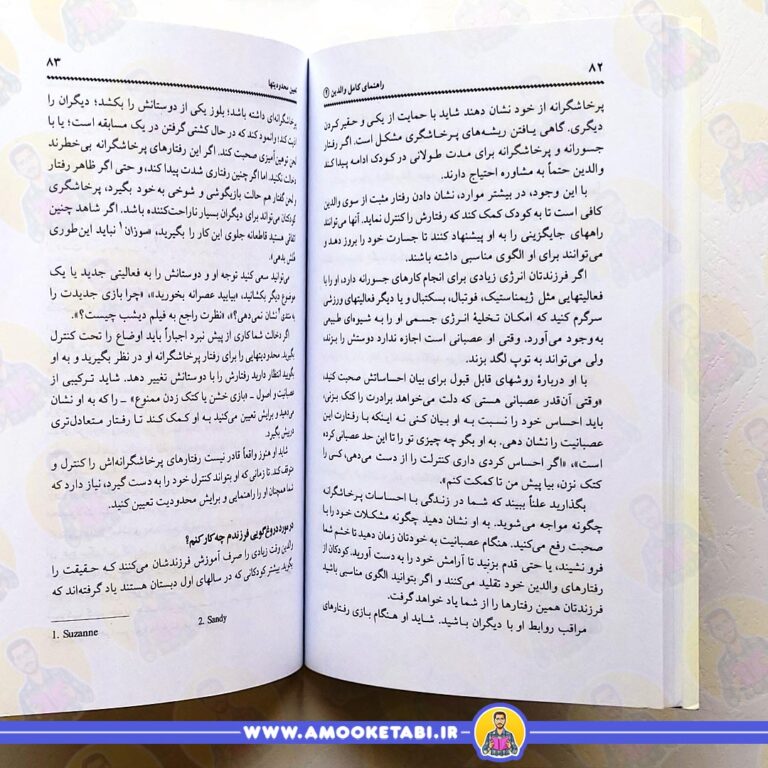 ۸۲
راهنمای کامل والدین ①
پرخاشگرانه از خود نشان دهند شاید با حمایت از یکی و حقیر کردن
دیگری. گاهی یافتن ریشه‌های پرخاشگری مشکل است. اگر رفتار
جسورانه و پرخاشگرانه برای مدت طولانی در کودک ادامه پیدا کند
والدین حتماً به مشاوره احتیاج دارند.
با این وجود، در بیشتر موارد، نشان دادن رفتار مثبت از سوی والدین
کافی است تا به کودک کمک کند که رفتارش را کنترل نماید. آنها می‌توانند
راههای جایگزینی را به او پیشنهاد کنند تا جسارت خود را بروز دهد و
می‌توانند برای او الگوی مناسبی داشته باشند.
اگر فرزندتان انرژی زیادی برای انجام کارهای جسورانه دارد، او را با
فعالیتهایی مثل ژیمناستیک، فوتبال، بسکتبال و یا دیگر فعالیتهای ورزشی
سرگرم کنید که امکان تخلیهٔ انرژی جسمی او را به شیوه‌ای طبیعی
به وجود می‌آورد. وقتی او عصبانی است اجازه ندارد دوستش را بزند،
ولی می‌تواند به توپ لگد بزند.
با او دربارهٔ روشهای قابل قبول برای بیان احساساتش صحبت کنید،
«وقتی آن‌قدر عصبانی هستی که دلت می‌خواهد برادرت را کتک بزنی،
باید احساس خود را نسبت به او بیان کنی نه اینکه با رفتارت این
عصبانیت را نشان دهی. به او بگو چه چیزی تو را تا این حد عصبانی کرده
است»، «اگر احساس کردی داری کنترلت را از دست می‌دهی، کسی را
کتک نزن، بیا پیش من تا کمکت کنم».
بگذارید علناً ببیند که شما در زندگی با احساسات پرخاشگرانه
چگونه مواجه می‌شوید. به او نشان دهید چگونه مشکلات خود را با
صحبت رفع می‌کنید. هنگام عصبانیت به خودتان زمان دهید تا خشم شما
فرو نشیند، یا حتی قدم بزنید تا آرامش خود را به دست آورید. کودکان از
رفتارهای والدین خود تقلید می‌کنند و اگر بتوانید الگوی مناسبی باشید
فرزندتان همین رفتارها را از شما یاد خواهد گرفت.
مراقب روابط او با دیگران باشید. شاید او هنگام بازی رفتارهای
۸۳
تعیین محدودیتها
پرخاشگرانه‌ای داشته باشد؛ بلوز یکی از دوستانش را بکشد؛ دیگران را
اذیت کند؛ وانمود کند که در حال کشتی گرفتن در یک مسابقه است؛ یا با
لحن توهین‌آمیزی صحبت کند. اگر این رفتارهای پرخاشگرانه بی‌خطرند
دخالت نکنید. اما اگر چنین رفتاری شدت پیدا کند، و حتی اگر ظاهر رفتار
و لحن گفتار هم حالت بازیگوشی و شوخی به‌خود بگیرد، پرخاشگری
کودکان می‌تواند برای دیگران بسیار ناراحت‌کننده باشد. اگر شاهد چنین
اتفاقی هستید قاطعانه جلوی این کار را بگیرید، «سوزان۱ نباید این‌طوری
هلش بدهی».
می‌توانید سعی کنید توجه او و دوستانش را به فعالیتی جدید یا یک
موضوع دیگر بکشانید، «بیایید عصرانه بخورید»، «چرا بازی جدیدت را
به سندی۲ نشان نمی‌دهی؟»، «نظرت راجع به فیلم دیشب چیست؟».
اگر دخالت شما کاری از پیش نبرد اجباراً باید اوضاع را تحت کنترل
بگیرید. محدودیتهایی را برای رفتار پرخاشگرانه او در نظر بگیرید و به او
بگویید انتظار دارید رفتارش را با دوستانش تغییر دهد. شاید ترکیبی از
عصبانیت و اصول ـ «بازی خشن یا کتک زدن ممنوع» ـ را که به او نشان
می‌دهید و برایش تعیین می‌کنید به او کمک کند تا رفتار متعادل‌تری
در پیش بگیرد.
شاید او هنوز واقعاً قادر نیست رفتارهای پرخاشگرانه‌اش را کنترل و
متوقف کند. تا زمانی که او بتواند کنترل خود را به دست گیرد، نیاز دارد که
شما همچنان او را راهنمایی و برایش محدودیت تعیین کنید.
در مورد دروغ‌گویی فرزندم چه کار کنم؟
والدین وقت زیادی را صرف آموزش فرزندشان می‌کنند که حقیقت را
بگوید. بیشتر کودکانی که در سالهای اول دبستان هستند یاد گرفته‌اند که
1. Suzanne 2. Sandy
WWW.AMOOKETABI.IR